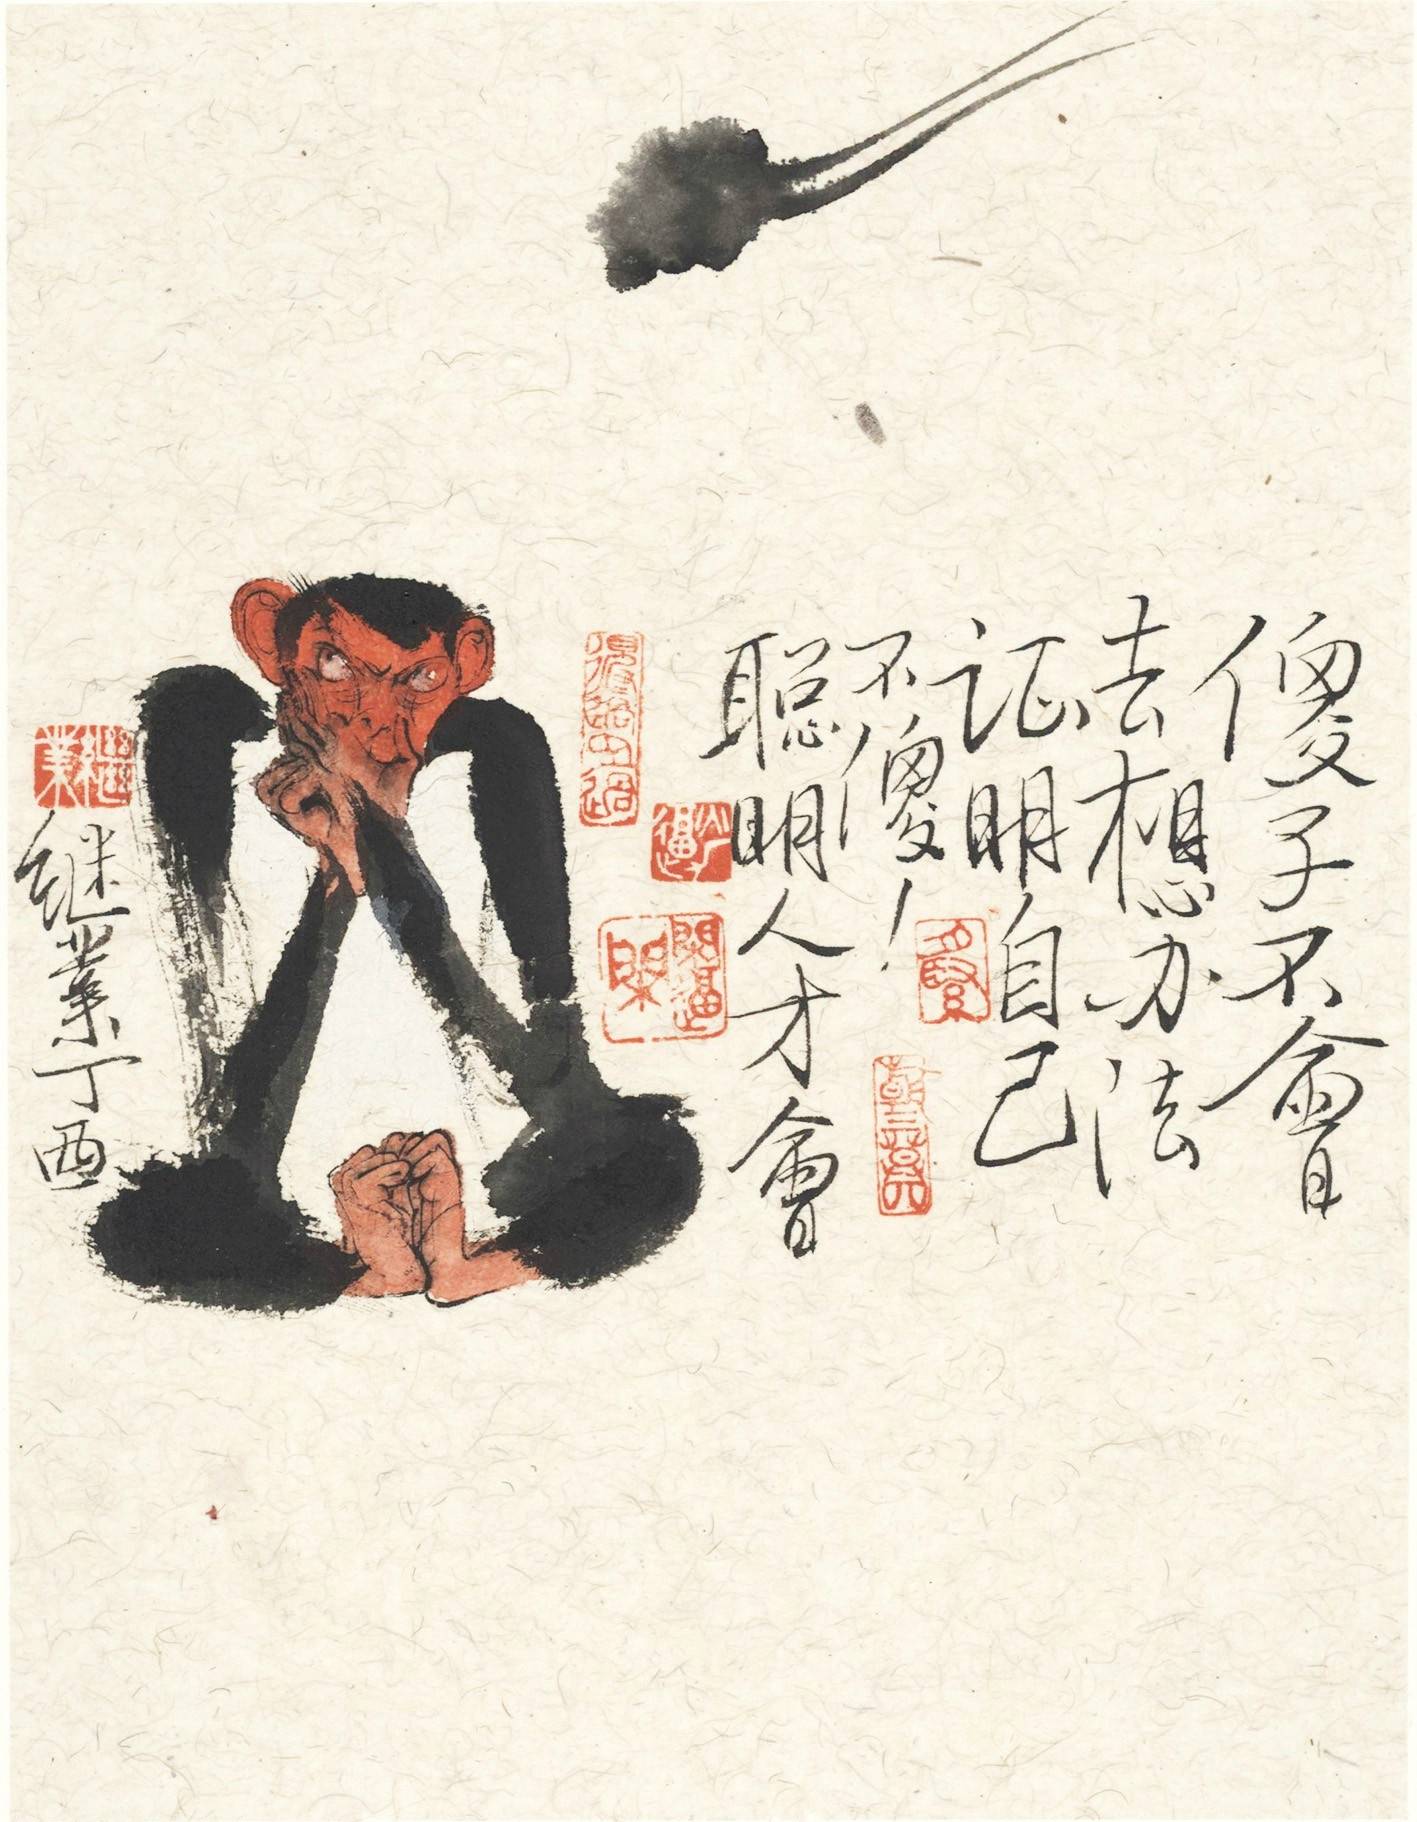 傻子不會
去想办法
证明自己
不傻！
聪明人才會
继業丁酉
繼業